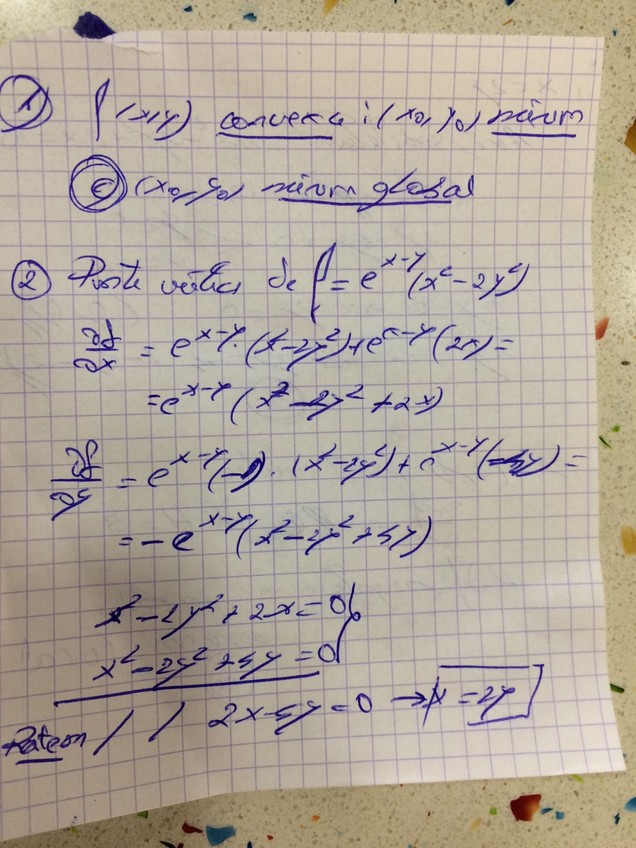 ① f(x,y) convexa : (x₀,y₀) mínim
ⓒ (x₀,y₀) mínim global
② Punts crítics de f = e^{x-y}(x²-2y²)
∂f/∂x = e^{x-y}·(x²-2y²)+e^{x-y}(2x)=
=e^{x-y}(x²-2y²+2x)
∂f/∂y = e^{x-y}(-1)·(x²-2y²)+e^{x-y}(-4y)=
=-e^{x-y}(x²-2y²+4y)
x²-2y²+2x=0}
x²-2y²+4y=0
Restem / / 2x-4y=0 → x=2y